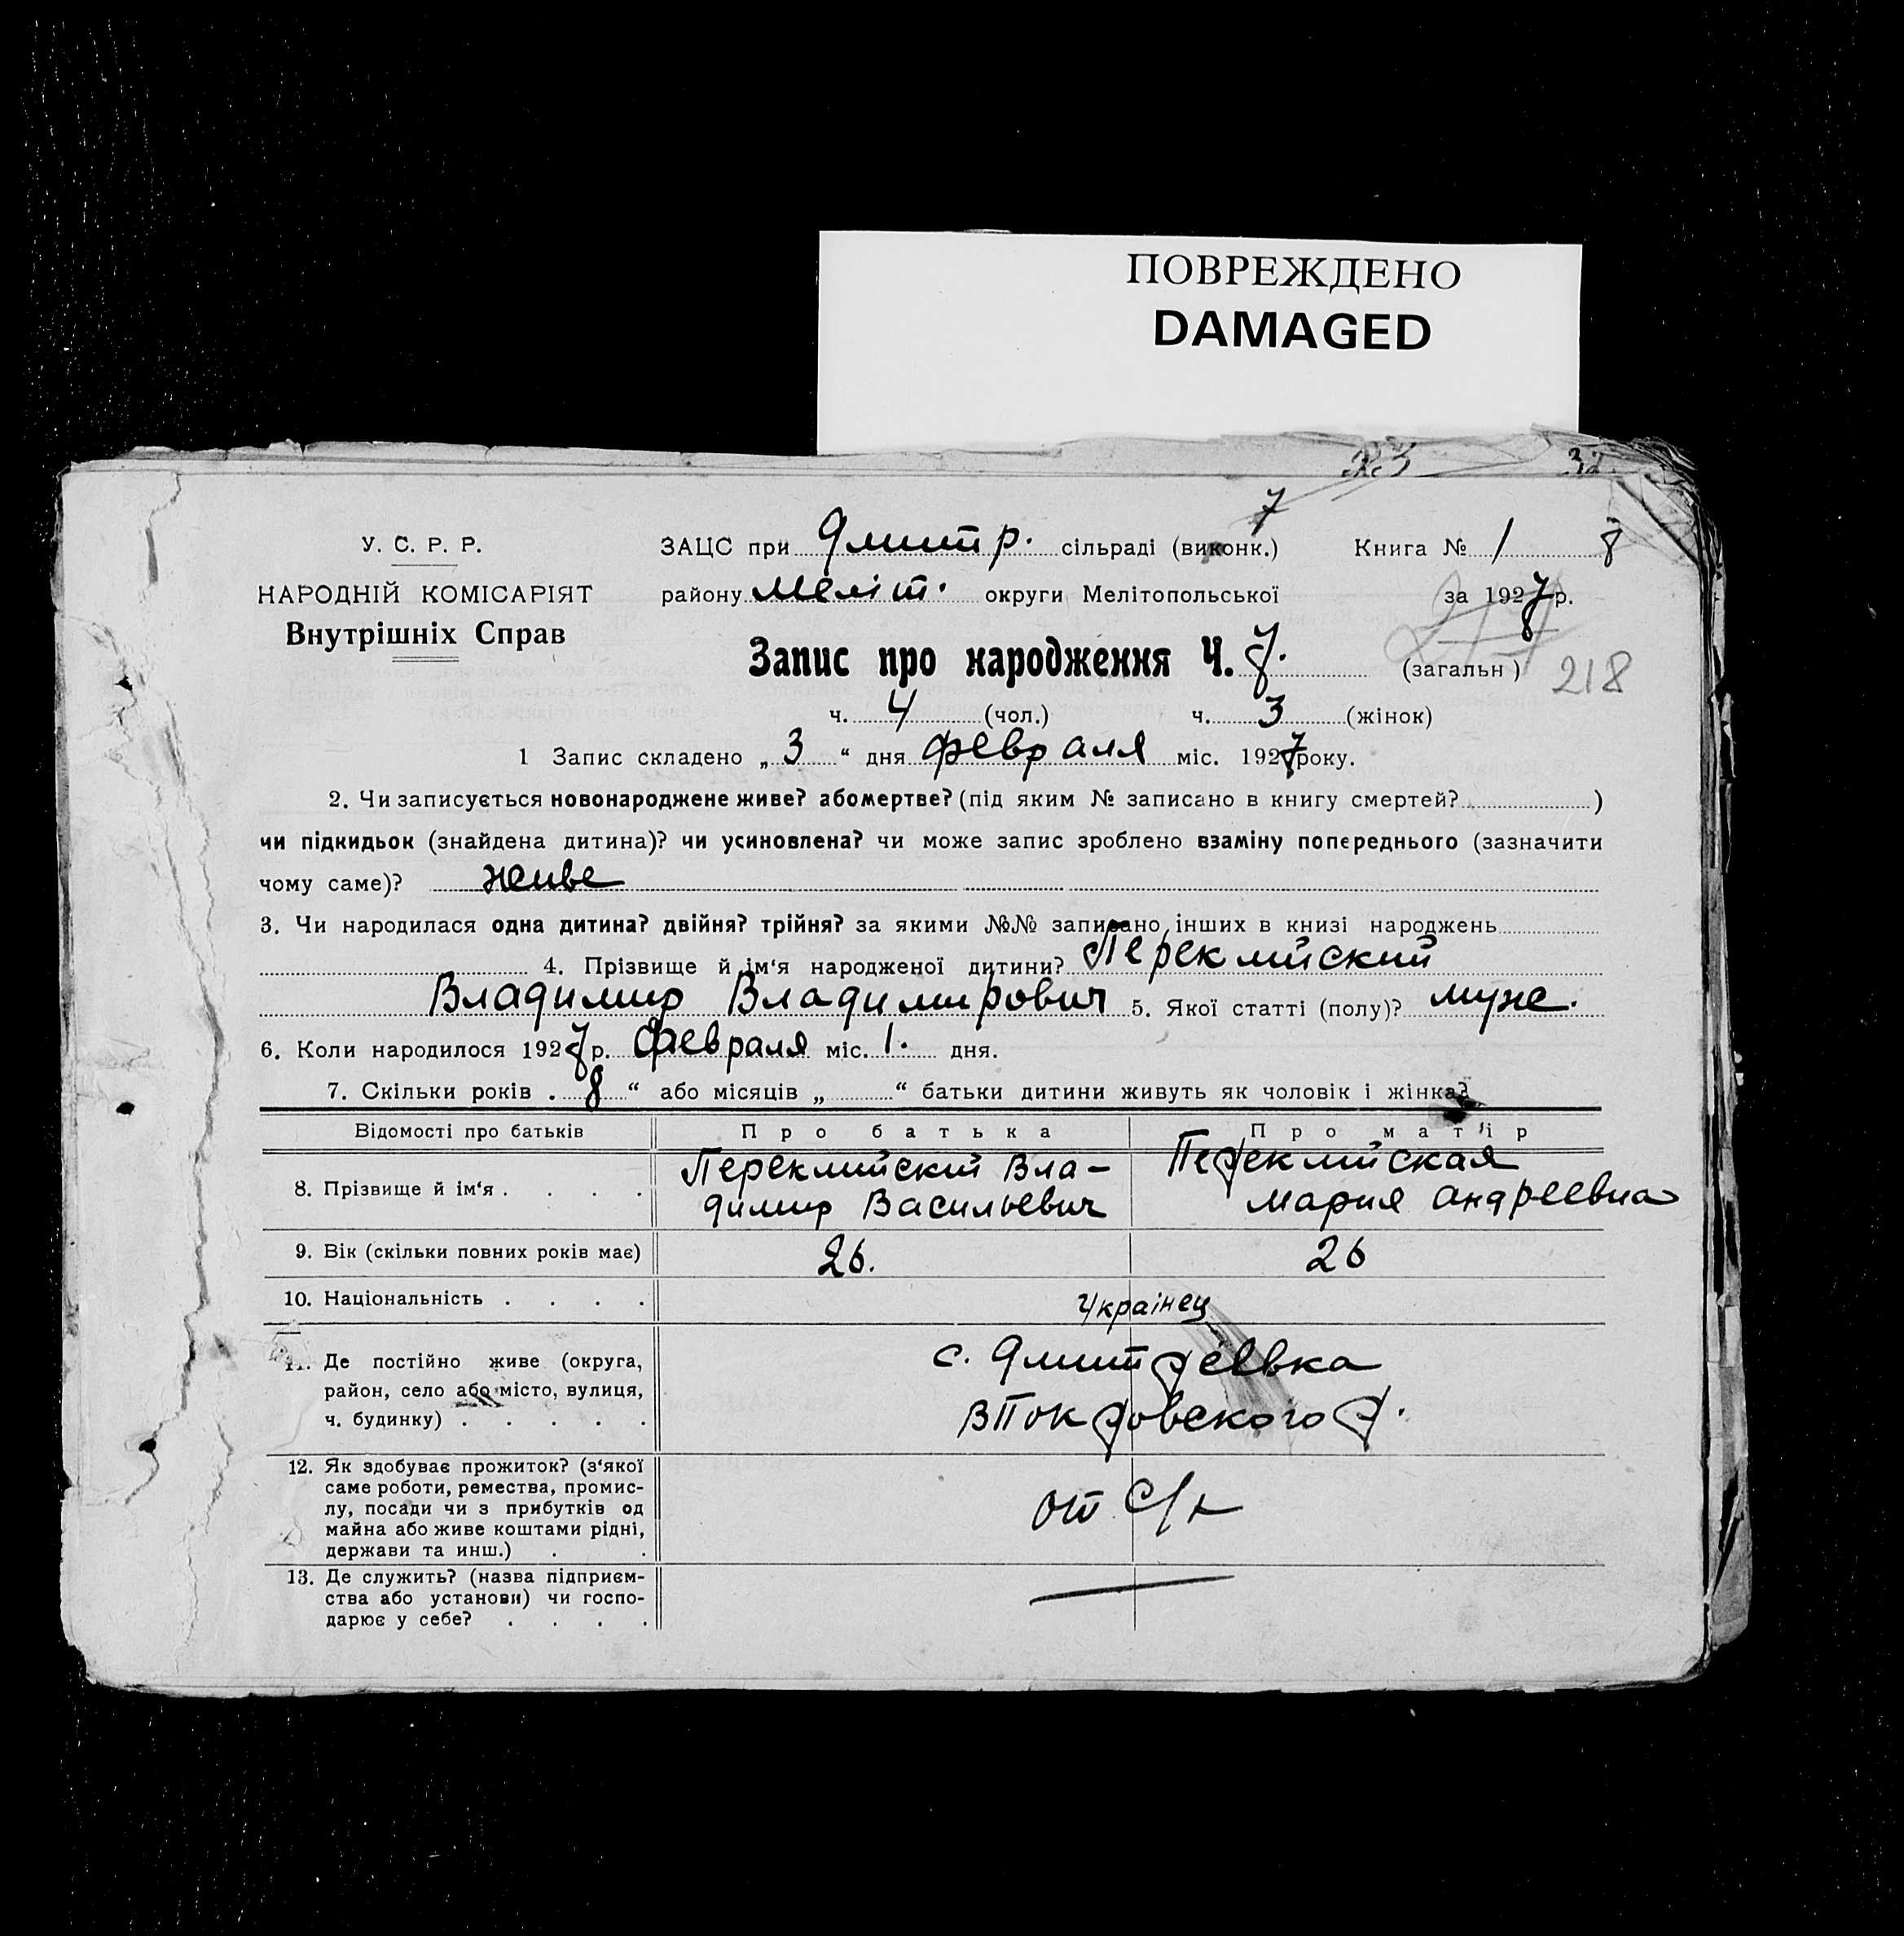 ПОВРЕЖДЕНО
DAMAGED
32
7
У. С. Р. Р.
ЗАЦС при Дмитр. сільраді (виконк.) Книга № 1 8
НАРОДНІЙ КОМІСАРІЯТ
району Меліт. округи Мелітопольської за 1927 р.
Внутрішніх Справ
Запис про народження Ч. 7. (загальн) 218
ч. 4 (чол.) ч. 3 (жінок)
1 Запис складено „ 3 “ дня февраля міс. 1927 року.
2. Чи записується новонароджене живе? або мертве? (під яким № записано в книгу смертей? )
чи підкидьок (знайдена дитина)? чи усиновлена? чи може запис зроблено взаміну попереднього (зазначити
чому саме)? живе
3. Чи народилася одна дитина? двійня? трійня? за якими №№ записано інших в книзі народжень
4. Прізвище й ім‘я народженої дитини? Переклийский
Владимир Владимирович 5. Якої статті (полу)? муж.
6. Коли народилося 1927 р. февраля міс. 1. дня.
7. Скільки років . 8 “ або місяців „ “ батьки дитини живуть як чоловік і жінка?
Відомості про батьків Про батька Про матір
8. Прізвище й ім‘я . . . . Переклийский Вла-
димир Васильевич Переклийская
Мария Андреевна
9. Вік (скільки повних років має) 26. 26
10. Національність . . . . Українец
11. Де постійно живе (округа,
район, село або місто, вулиця,
ч. будинку) . . . . . с. Дмитреевка
ВПокровского р.
12. Як здобуває прожиток? (з‘якої
саме роботи, ремества, промис-
лу, посади чи з прибутків од
майна або живе коштами рідні,
держави та инш.) . . от с/х
13. Де служить? (назва підприєм-
ства або установи) чи госпо-
дарює у себе? . . . .